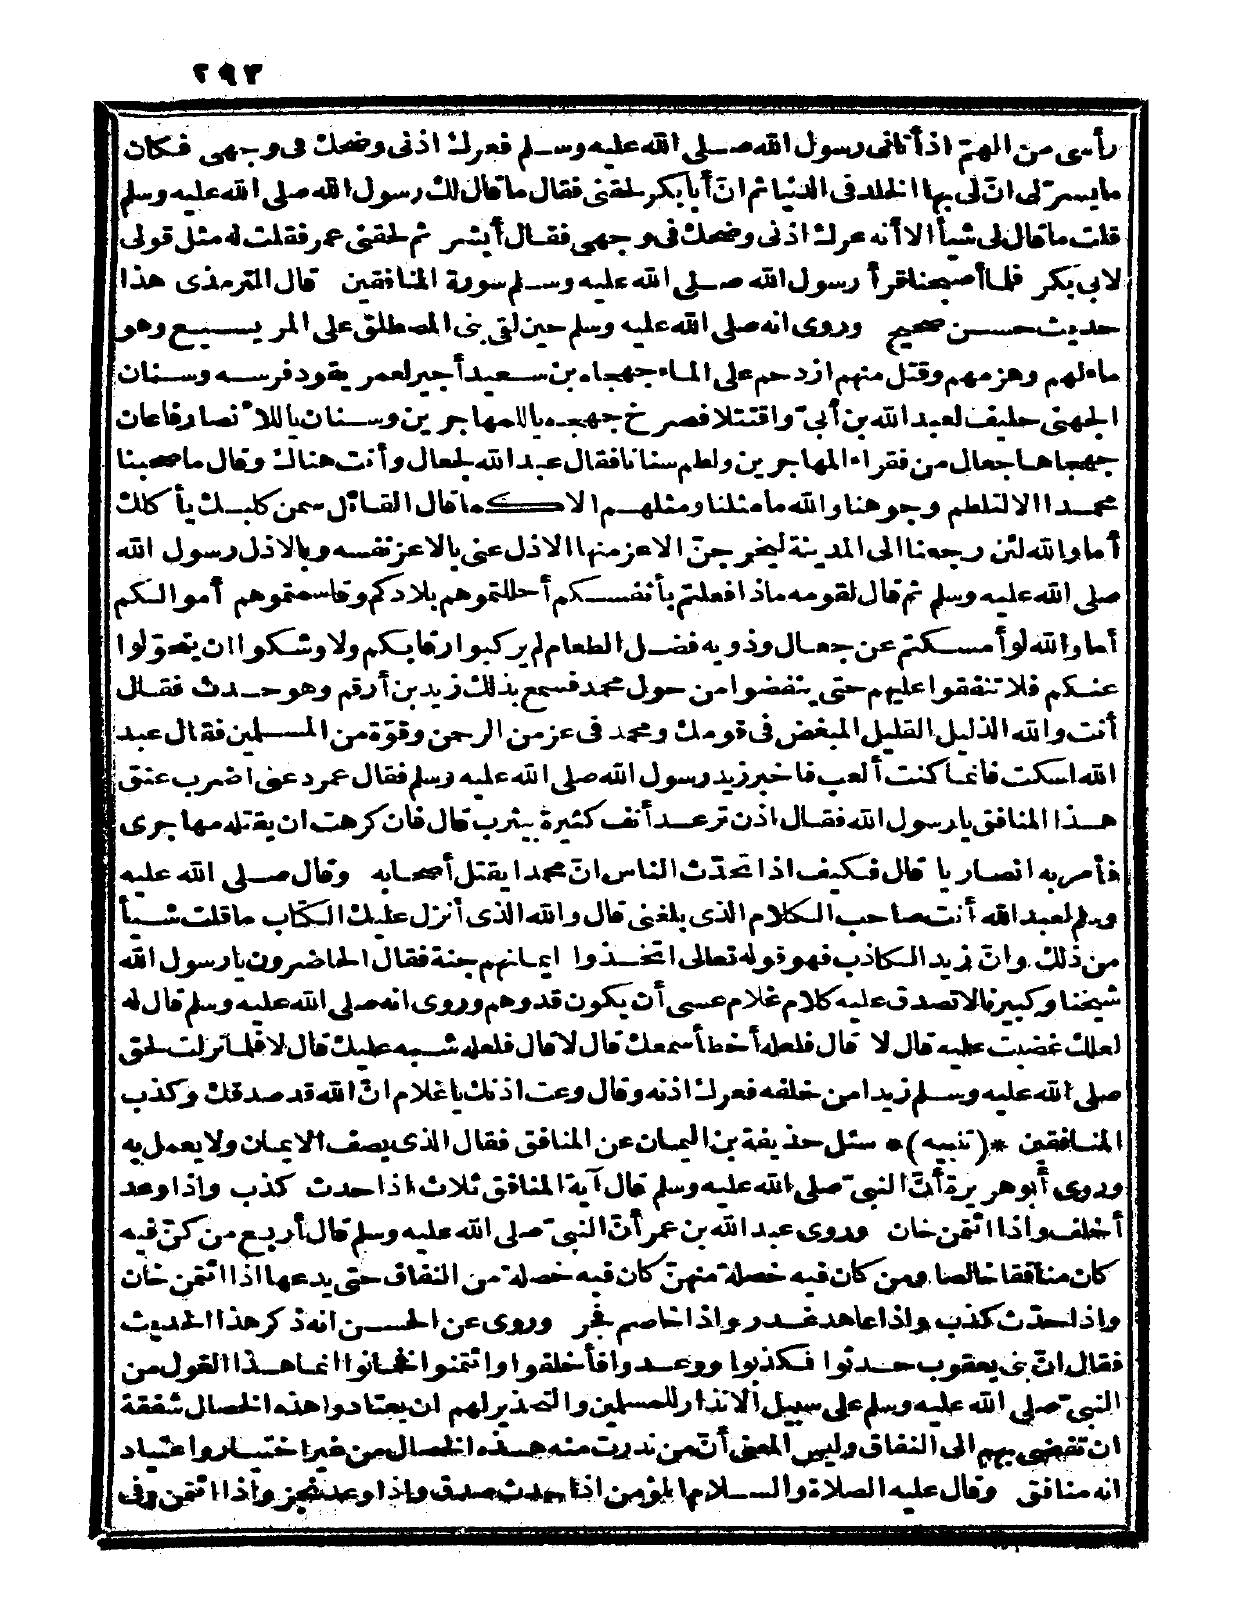 ٢٩٣
رأسى من الهمّ اذ أتانى رسول الله صلى الله عليه وسلم فعرك اذنى وضحك فى وجهى فكان
ما يسرّنى انّ لى بها الخلد فى الدنيا ثم انّ أبا بكر لحقنى فقال ما قال لك رسول الله صلى الله عليه وسلم
قلت ما قال لى شيأ الا أنه عرك اذنى وضحك فى وجهى فقال أبشر ثم لحقنى عمر فقلت له مثل قولى
لابى بكر فلما أصبحنا قرأ رسول الله صلى الله عليه وسلم سورة المنافقين قال الترمذى هذا
حديث حسن صحيح وروى انه صلى الله عليه وسلم حين لقى بنى المصطلق على المريسيع وهو
ماء لهم وهزمهم وقتل منهم ازدحم على الماء جهجاه بن سعيد أجير لعمر يقود فرسه وسنان
الجهنى حليف لعبد الله بن أبىّ واقتتلا فصرخ جهجه يا للمهاجرين وسنان يا للأنصار فأعان
جهجاها جعال من فقراء المهاجرين ولطم سنانا فقال عبد الله لجعال وأنت هناك وقال ما صحبنا
محمدا الا لتلطم وجوهنا والله ما مثلنا ومثلهم الا كما قال القائل سمن كلبك يأكلك
أما والله لئن رجعنا الى المدينة ليخرجنّ الاعز منها الاذل عنى بالاعز نفسه وبالاذل رسول الله
صلى الله عليه وسلم ثم قال لقومه ماذا فعلتم بأنفسكم أحللتموهم بلادكم وقاسمتموهم أموالكم
أما والله لو أمسكتم عن جعال وذويه فضل الطعام لم يركبوا رقابكم ولا وشكوا ان يتحوّلوا
عنكم فلا تنفقوا عليهم حتى ينفضوا من حول محمد فسمع بذلك زيد بن أرقم وهو حدث فقال
أنت والله الذليل القليل المبغض فى قومك ومحمد فى عز من الرحمن وقوّة من المسلمين فقال عبد
الله اسكت فانما كنت ألعب فاخبر زيد رسول الله صلى الله عليه وسلم فقال عمر دعنى اضرب عنق
هذا المنافق يا رسول الله فقال اذن ترعد أنف كثيرة بيثرب قال فان كرهت ان يقتله مهاجرى
فأمر به انصاريا قال فكيف اذا تحدّث الناس انّ محمدا يقتل أصحابه وقال صلى الله عليه
وسلم لعبد الله أنت صاحب الكلام الذى بلغنى قال والله الذى أنزل عليك الكتاب ما قلت شيأ
من ذلك وانّ زيد الكاذب فهو قوله تعالى اتخذوا ايمانهم جنة فقال الحاضرون يا رسول الله
شيخنا وكبيرنا لا تصدق عليه كلام غلام عسى أن يكون قد وهم وروى انه صلى الله عليه وسلم قال له
لعلك غضبت عليه قال لا قال فلعله أخطأ سمعك قال لا قال فلعله شبه عليك قال لا فلما نزلت لحق
صلى الله عليه وسلم زيدا من خلفه فعرك اذنه وقال وعت اذنك يا غلام انّ الله قد صدقك وكذب
المنافقين *(تنبيه)* سئل حذيفة بن اليمان عن المنافق فقال الذى يصف الايمان ولا يعمل به
وروى أبو هريرة أنّ النبىّ صلى الله عليه وسلم قال آية المنافق ثلاث اذا حدث كذب واذا وعد
أخلف واذا ائتمن خان وروى عبد الله بن عمر أنّ النبىّ صلى الله عليه وسلم قال أربع من كنّ فيه
كان منافقا خالصا ومن كان فيه خصلة منهنّ كان فيه خصلة من النفاق حتى يدعها اذا ائتمن خان
واذا حدّث كذب واذا عاهد غدر واذا خاصم فجر وروى عن الحسن انه ذكر هذا الحديث
فقال انّ بنى يعقوب حدثوا فكذبوا ووعدوا فأخلفوا وائتمنوا فخانوا انما هذا القول من
النبىّ صلى الله عليه وسلم على سبيل الانذار للمسلمين والتحذير لهم ان يعتادوا هذه الخصال شفقة
ان تفضى بهم الى النفاق وليس المعنى أنّ من ندرت منه هذه الخصال من غير اختيار واعتياد
انه منافق وقال عليه الصلاة والسلام المؤمن اذا حدث صدق واذا وعد نجز واذا ائتمن وفى